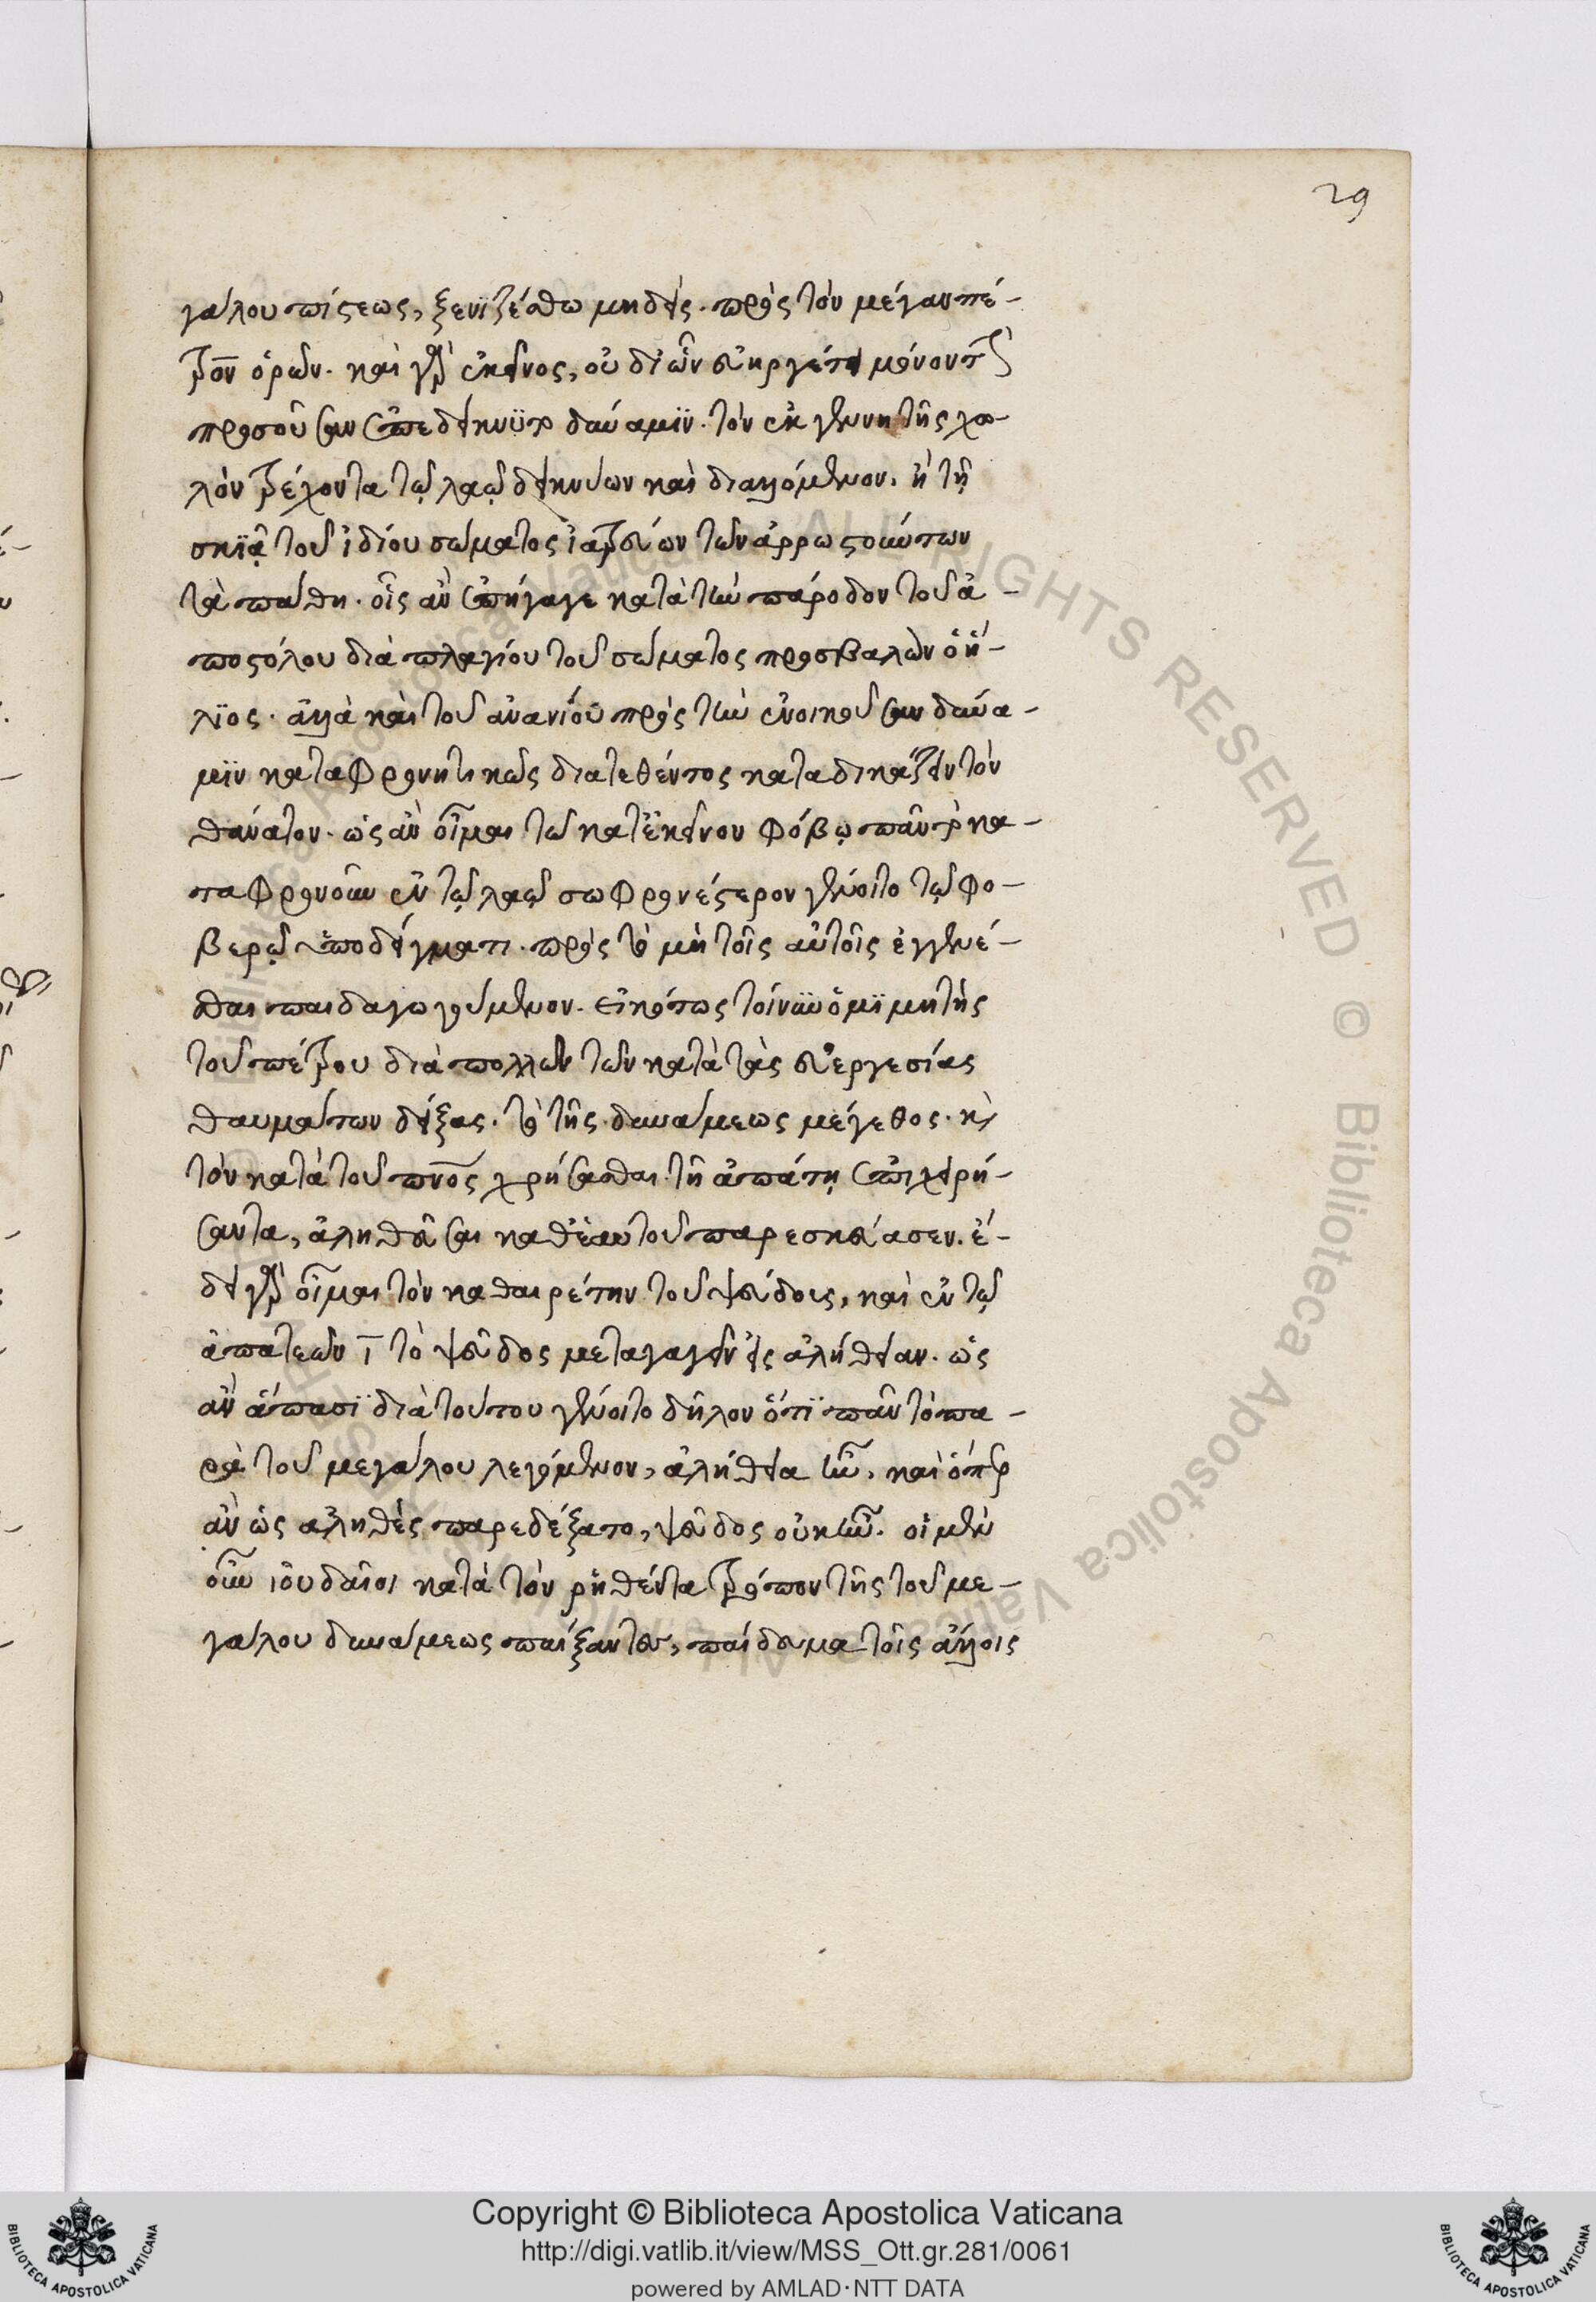 29
γάλου πίστεως, ξενιζέσθω μηδείς. πρὸς τὸν μέγαν πέ-
τρον ὁρῶν. καὶ γὰρ ἐκεῖνος, οὐ δι' ὧν εὐηργέτει μόνον τ(ὴν)
προσοῦσαν ἐπεδείκνυτο δύναμιν. τὸν ἐκ γενετῆς χω-
λὸν τρέχοντα τῷ λαῷ δεικνύων καὶ διαλλόμενον. ἢ τῇ
σκιᾷ τοῦ ἰδίου σώματος ἰατρεύων τῶν ἀρρωστούντων
τὰ πάθη. οἷς ἂν ἐπήγαγε κατὰ τὴν πάροδον τοῦ ἀ-
ποστόλου διὰ πλαγίου τοῦ σώματος προσβαλὼν ὁ ἥ-
λιος. ἀλλὰ καὶ τοῦ ἀνανίου πρὸς τὴν ἐνοικοῦσαν δύνα-
μιν καταφρονητικῶς διατεθέντος καταδικάζειν τὸν
θάνατον. ὡς ἂν οἶμαι τῷ κατ' ἐκείνου φόβῳ πᾶν τὸ κα-
ταφρονοῦν ἐν τῷ λαῷ σωφρονέστερον γένοιτο τῷ φο-
βερῷ ὑποδείγματι. πρὸς τὸ μὴ τοῖς αὐτοῖς ἐγγενέ-
σθαι παιδαγωγούμενον. εἰκότως τοίνυν ὁ μιμητὴς
τοῦ πέτρου διὰ πολλῶν τῶν κατὰ τὰς εὐεργεσίας
θαυμάτων δείξας. τὸ τῆς δυνάμεως μέγεθος. κ(αὶ)
τὸν κατὰ τοῦ πν̅ος χρήσασθαι τῇ ἀπάτῃ ἐπιχειρή-
σαντα, ἀληθεῦσαι καθ' ἑαυτοῦ παρεσκεύασεν. ἔ-
δει γὰρ οἶμαι τὸν καθαιρέτην τοῦ ψεύδους, καὶ ἐν τῷ
ἀπατεῶνι τὸ ψεῦδος μεταγαγεῖν εἰς ἀλήθειαν. ὡς
ἂν ἅπασι διὰ τούτου γένοιτο δῆλον ὅτι πᾶν τὸ πα-
ρὰ τοῦ μεγάλου λεγόμενον, ἀλήθεια ἦν. καὶ ὅπερ
ἂν ὡς ἀληθὲς παρεδέξατο, ψεῦδος οὐκ ἦν. οἱ μὲν
οὖν ἰουδαῖοι κατὰ τὸν ῥηθέντα τρόπον τῆς τοῦ με-
γάλου δυνάμεως παίξαντες, παίδευμα τοῖς ἄλλοις
BIBLIOTECA APOSTOLICA VATICANA
Copyright © Biblioteca Apostolica Vaticana
http://digi.vatlib.it/view/MSS_Ott.gr.281/0061
powered by AMLAD·NTT DATA
BIBLIOTECA APOSTOLICA VATICANA